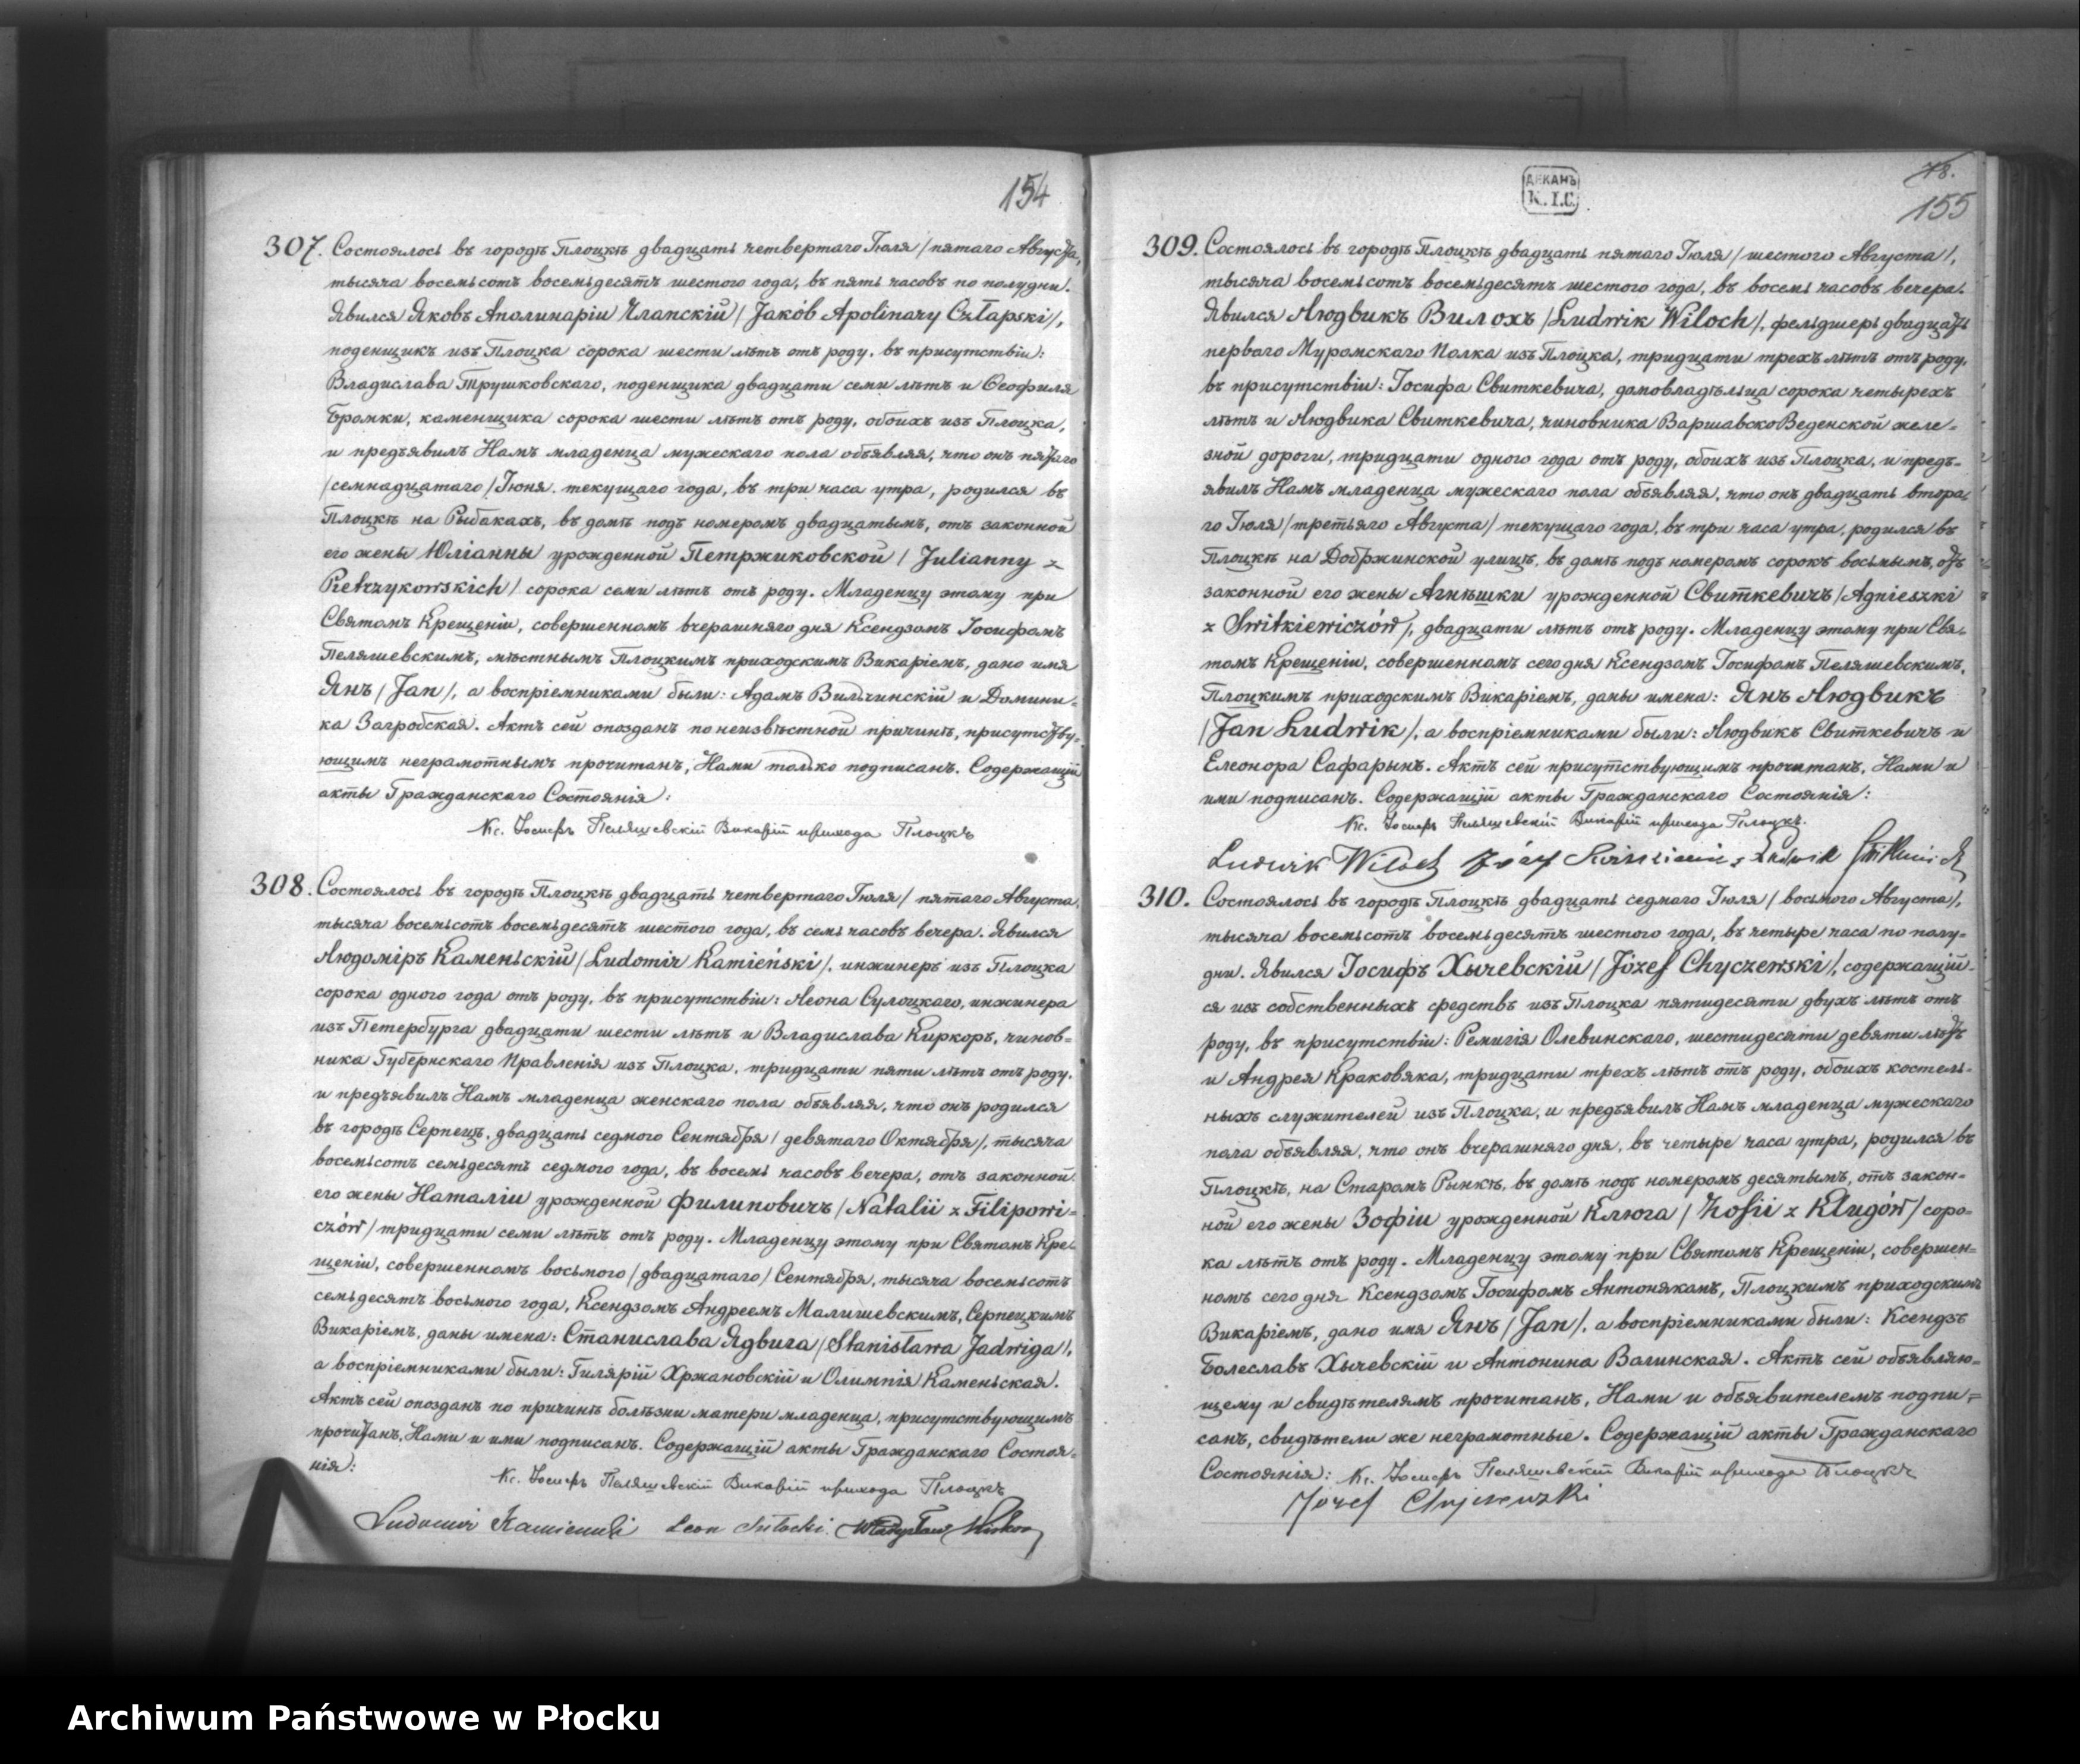 154
307. Состоялось въ городѣ Плоцкѣ двадцать четвертаго Іюля /пятаго Августа,
тысяча восемьсотъ восемьдесятъ шестого года, въ пять часовъ по полудни.
Явился Яковъ Аполинарій Члапскій /Jakób Apolinary Człapski/,
поденщикъ изъ Плоцка сорока шести лѣтъ отъ роду, въ присутствіи:
Владислава Трушковскаго, поденщика двадцати семи лѣтъ и Ѳеофиля
Бромки, каменщика сорока шести лѣтъ отъ роду, обоихъ изъ Плоцка,
и предъявилъ Намъ младенца мужескаго пола объявляя, что онъ пятаго
/семнадцатаго/ Іюня текущаго года, въ три часа утра, родился въ
Плоцкѣ на Рыбакахъ, въ домѣ подъ номеромъ двадцатымъ, отъ законной
его жены Юліанны урожденной Петржиковской /Julianny z
Pietrzykowskich/ сорока семи лѣтъ отъ роду. Младенцу этому при
Святомъ Крещеніи, совершенномъ вчерашняго дня Ксендзомъ Іосифомъ
Пеляшевскимъ, мѣстнымъ Плоцкимъ приходскимъ Викаріемъ, дано имя
Янъ /Jan/, а воспріемниками были: Адамъ Вильчинскій и Домини-
ка Загробская. Актъ сей опозданъ по неизвѣстной причинѣ, присутству-
ющимъ неграмотнымъ прочитанъ, Нами только подписанъ. Содержащій
акты Гражданскаго Состоянія:
Кс. Іосифъ Пеляшевскій Викарій прихода Плоцкъ
308. Состоялось въ городѣ Плоцкѣ двадцать четвертаго Іюля /пятаго Августа,
тысяча восемьсотъ восемьдесятъ шестого года, въ семь часовъ вечера. Явился
Людоміръ Каменьскій /Ludomir Kamieński/, инжинеръ изъ Плоцка
сорока одного года отъ роду, въ присутствіи: Леона Сулоцкаго, инжинера
изъ Петербурга двадцати шести лѣтъ и Владислава Киркоръ, чинов-
ника Губернскаго Правленія изъ Плоцка, тридцати пяти лѣтъ отъ роду,
и предъявилъ Намъ младенца женскаго пола объявляя, что онъ родился
въ городѣ Серпецъ, двадцать седмого Сентября /девятаго Октября/, тысяча
восемьсотъ семьдесятъ седмого года, въ восемь часовъ вечера, отъ законной
его жены Наталіи урожденной Филиповичъ /Natalii z Filipowi-
czów/ тридцати семи лѣтъ отъ роду. Младенцу этому при Святомъ Кре-
щеніи, совершенномъ восьмого /двадцатаго/ Сентября, тысяча восемьсотъ
семьдесятъ восьмого года, Ксендзомъ Андреемъ Малишевскимъ, Серпецкимъ
Викаріемъ, даны имена: Станислава Ядвига /Stanisława Jadwiga/,
а воспріемниками были: Гилярій Хржановскій и Олимпія Каменьская.
Актъ сей опозданъ по причинѣ болѣзни матери младенца, присутствующимъ
прочитанъ, Нами и ими подписанъ. Содержащій акты Гражданскаго Состоя-
нія:
Кс. Іосифъ Пеляшевскій Викарій прихода Плоцкъ
Ludomir Kamieński Leon Sułocki. Władysław Kirkor
ДЕКАНЪ
K. I. C.
78.
155
309. Состоялось въ городѣ Плоцкѣ двадцать пятаго Іюля /шестого Августа/,
тысяча восемьсотъ восемьдесятъ шестого года, въ восемь часовъ вечера.
Явился Людвикъ Вилохъ /Ludwik Wiloch/, фельдшеръ двадцать
перваго Муромскаго Полка изъ Плоцка, тридцати трехъ лѣтъ отъ роду,
въ присутствіи: Іосифа Свиткевича, домовладѣльца сорока четырехъ
лѣтъ и Людвика Свиткевича, чиновника ВаршавскоВеденской желе-
зной дороги, тридцати одного года отъ роду, обоихъ изъ Плоцка, и предъ-
явилъ Намъ младенца мужескаго пола объявляя, что онъ двадцать втора-
го Іюля /третьяго Августа/ текущаго года, въ три часа утра, родился въ
Плоцкѣ на Добржинской улицѣ, въ домѣ подъ номеромъ сорокъ восьмымъ, отъ
законной его жены Агнѣшки урожденной Свиткевичъ /Agnieszki
z Świtkiewiczów/, двадцати лѣтъ отъ роду. Младенцу этому при Свя-
томъ Крещеніи, совершенномъ сего дня Ксендзомъ Іосифомъ Пеляшевскимъ,
Плоцкимъ приходскимъ Викаріемъ, даны имена: Янъ Людвикъ
/Jan Ludwik/, а воспріемниками были: Людвикъ Свиткевичъ и
Елеонора Сафарынъ. Актъ сей присутствующимъ прочитанъ, Нами и
ими подписанъ. Содержащій акты Гражданскаго Состоянія:
Кс. Іосифъ Пеляшевскій Викарій прихода Плоцкъ.
Ludwik Wiloch Józef Ludwik
310. Состоялось въ городѣ Плоцкѣ двадцать седмого Іюля /восьмого Августа/,
тысяча восемьсотъ восемьдесятъ шестого года, въ четыре часа по полу-
дни. Явился Іосифъ Хычевскій /Józef Chyczewski/, содержащій-
ся изъ собственныхъ средствъ изъ Плоцка пятидесяти двухъ лѣтъ отъ
роду, въ присутствіи: Ремигія Олевинскаго, шестидесяти девяти лѣтъ
и Андрея Краковяка, тридцати трехъ лѣтъ отъ роду, обоихъ костель-
ныхъ служителей изъ Плоцка, и предъявилъ Намъ младенца мужескаго
пола объявляя, что онъ вчерашняго дня, въ четыре часа утра, родился въ
Плоцкѣ, на Старомъ Рынкѣ, въ домѣ подъ номеромъ десятымъ, отъ закон-
ной его жены Зофіи урожденной Клюга /Zofii z Klugów/ соро-
ка лѣтъ отъ роду. Младенцу этому при Святомъ Крещеніи, совершен-
номъ сего дня Ксендзомъ Іосифомъ Антонякомъ, Плоцкимъ приходскимъ
Викаріемъ, дано имя Янъ /Jan/, а воспріемниками были: Ксендзъ
Болеславъ Хычевскій и Антонина Вагинская. Актъ сей объявляю-
щему и свидѣтелямъ прочитанъ, Нами и объявителемъ подпи-
санъ, свидѣтели же неграмотные. Содержащій акты Гражданскаго
Состоянія: Кс. Іосифъ Пеляшевскій Викарій прихода Плоцкъ
Józef Chyczewski
Archiwum Państwowe w Płocku